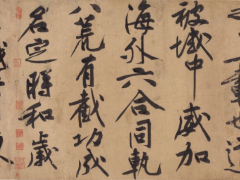 被域中威加
海外六合同軌
八荒有截功成
名定時和歲